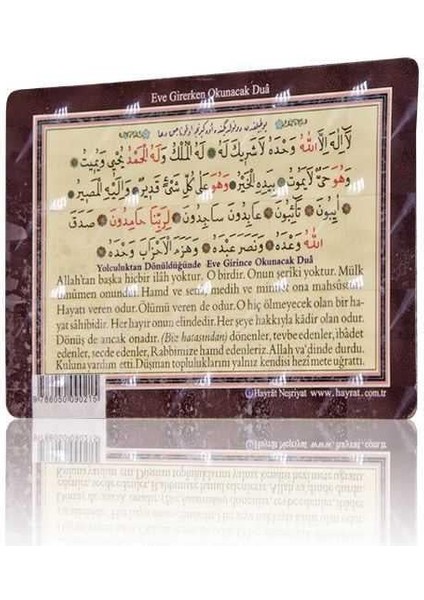 Eve Girerken Okunacak Duâ
لَٓا اِلٰهَ اِلَّا اللّٰهُ وَحْدَهُ لَا شَرِيكَ لَهُ ۞ لَهُ الْمُلْكُ وَلَهُ الْحَمْدُ يُحْيِي وَيُمِيتُ ۞
وَهُوَ حَيٌّ لَا يَمُوتُ ۞ بِيَدِهِ الْخَيْرُ ۞ وَهُوَ عَلٰى كُلِّ شَيْءٍ قَدِيرٌ ۞ وَاِلَيْهِ الْمَصِيرُ
۞ اٰيِبُونَ ۞ تَائِبُونَ ۞ عَابِدُونَ سَاجِدُونَ ۞ لِرَبِّنَا حَامِدُونَ ۞ صَدَقَ
اللّٰهُ وَعْدَهُ ۞ وَنَصَرَ عَبْدَهُ ۞ وَهَزَمَ الْاَحْزَابَ وَحْدَهُ ۞
Yolculuktan Dönüldüğünde Eve Girince Okunacak Duâ
Allah'tan başka hiçbir ilâh yoktur. O birdir. Onun şerîki yoktur. Mülk
umûmen onundur. Hamd ve senâ, medih ve minnet ona mahsûstur.
Hayatı veren odur. Ölümü veren de odur. O hiç ölmeyecek olan bir ha-
yat sâhibidir. Her hayır onun elindedir. Her şeye hakkıyla kâdir olan odur.
Dönüş de ancak onadır. (Biz hatasından) dönenler, tevbe edenler, ibâdet
edenler, secde edenler, Rabbimize hamd edenleriz. Allah va'dinde durdu.
Kuluna yardım etti. Düşman topluluklarını yalnız kendisi hezimete uğrattı.
9786050090215
Hayrât Neşriyat www.hayrat.com.tr